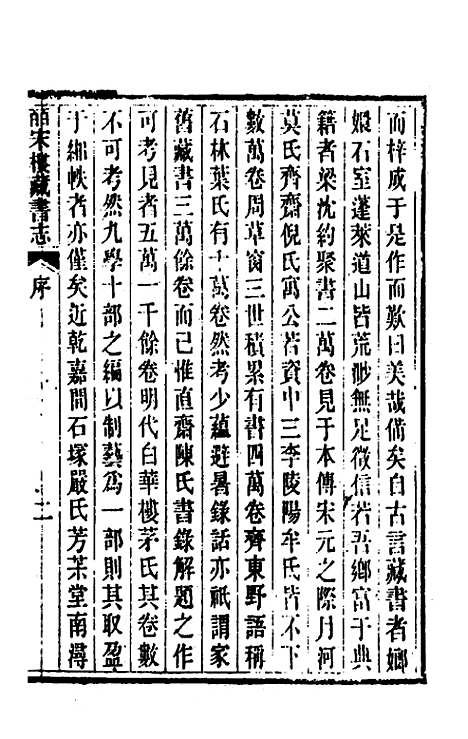 而梓成于是作而歎曰美哉備矣自古言藏書者嫏
嬛石室蓬萊道山皆荒渺無足徵信若吾鄉富于典
籍者梁沈約聚書二萬卷見于本傳宋元之際月河
莫氏齊齋倪氏寓公若資中三李陵陽牟氏皆不下
數萬卷周草窗三世積累有書四萬卷齊東野語稱
石林葉氏有十萬卷然考少蘊避暑錄話亦祇謂家
舊藏書三萬餘卷而已惟直齋陳氏書錄解題之作
可考見者五萬一千餘卷明代白華樓茅氏其卷數
不可考然九學十部之編以制藝爲一部則其取盈
于緗帙者亦僅矣近乾嘉間石塚嚴氏芳茮堂南潯
皕宋樓藏書志 序 二